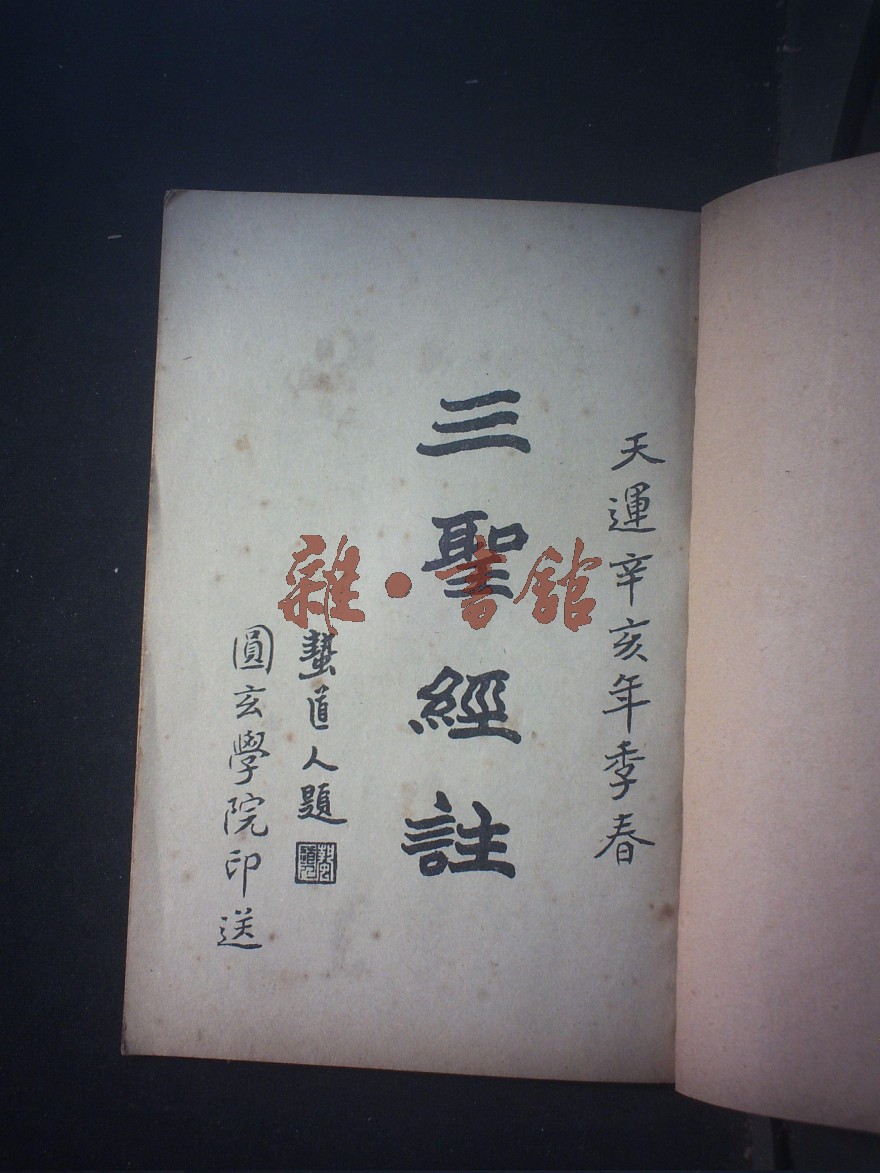 天運辛亥年季春
三聖經註
蟄道人題
圓玄學院印送
雜·書館